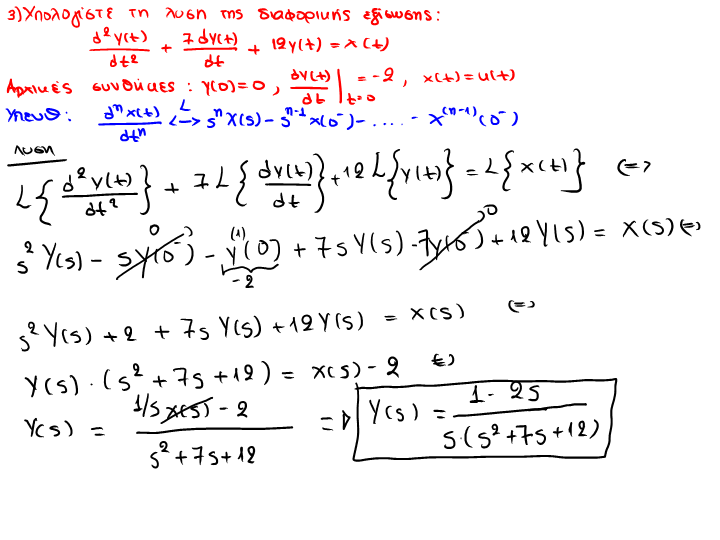 3) Υπολογίστε τη λυση της διαφορικής εξίσωσης:
d²y(t)/dt² + 7dy(t)/dt + 12y(t) = x(t)
Αρχικές συνθήκες : y(0)=0 , dy(t)/dt |t=0 = -2 , x(t)=u(t)
Υπενθ: dⁿx(t)/dtⁿ <-L-> sⁿ X(s) - sⁿ⁻¹ x(0⁻) - .... - x⁽ⁿ⁻¹⁾(0⁻)
λυση
L{d²y(t)/dt²} + 7L{dy(t)/dt} + 12L{y(t)} = L{x(t)} <=>
s²Y(s) - sy(0⁻) 0 - y⁽¹⁾(0) -2 + 7sY(s) - 7y(0⁻) 0 + 12Y(s) = X(s) <=>
s²Y(s) + 2 + 7sY(s) + 12Y(s) = X(s) <=>
Y(s) · (s² + 7s + 12) = X(s) - 2 <=>
Y(s) = (1/s x(s) - 2)/(s² + 7s + 12) => Y(s) = (1 - 2s)/(s·(s² + 7s + 12))